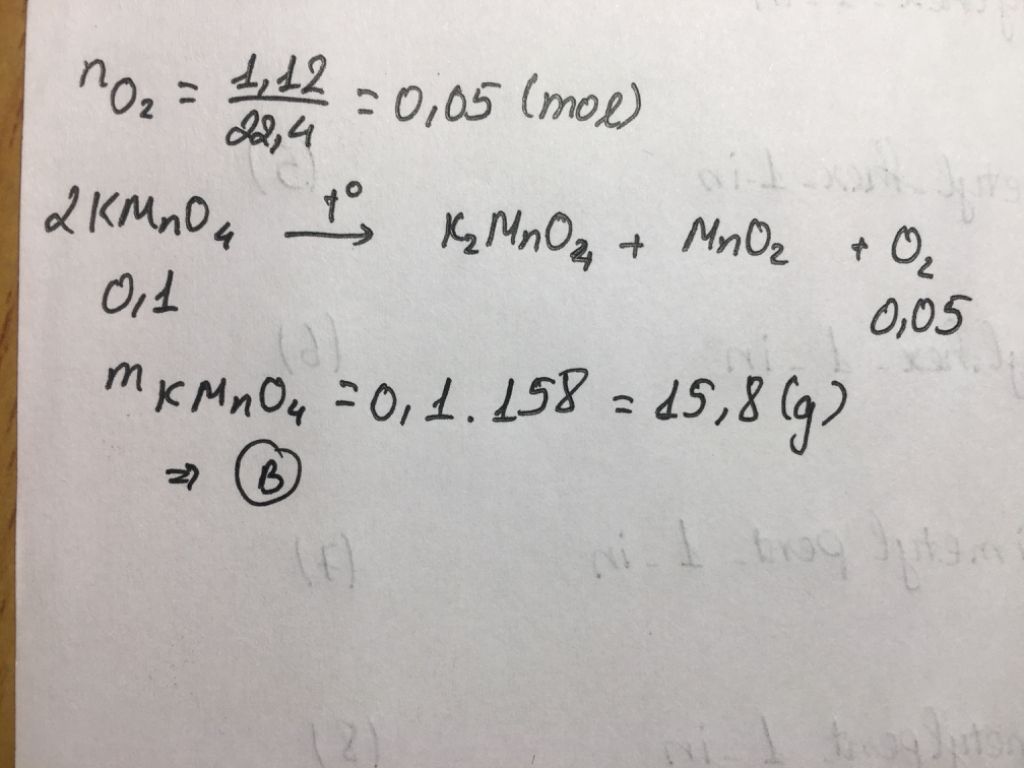 nO2 = 1,12 / 22,4 = 0,05 (mol)
2KMnO4 →(t°) K2MnO4 + MnO2 + O2
0,1 0,05
mKMnO4 = 0,1.158 = 15,8 (g)
⇒ B